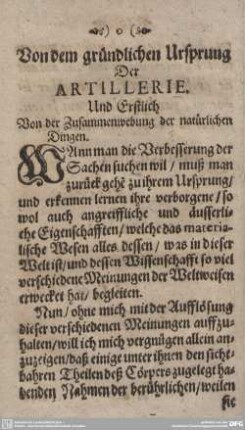 ) o (
Von dem gründlichen Ursprung
Der
ARTILLERIE.
Und Erstlich
Von der Zusammenwebung der natürlichen
Dingen.
WAnn man die Verbesserung der
Sachen suchen wil / muß man
zurück gehẽ zu ihrem Ursprung /
und erkennen lernen ihre verborgene / so
wol auch angreiffliche und äusserli-
che Eigenschafften / welche das materia-
lische Wesen alles dessen / was in dieser
Welt ist / und dessen Wissenschafft so viel
verschiedene Meinungen der Weltweisen
erwecket hat / begleiten.
Nun / ohne mich mit der Aufflösung
dieser verschiedenen Meinungen auffzu-
halten / will ich mich vergnügen allein an-
zuzeigen / daß einige unter ihnen den sicht-
bahren Theilen deß Cörpers zugelegt ha-
benden Nahmen der berührlichen / weilen
sie